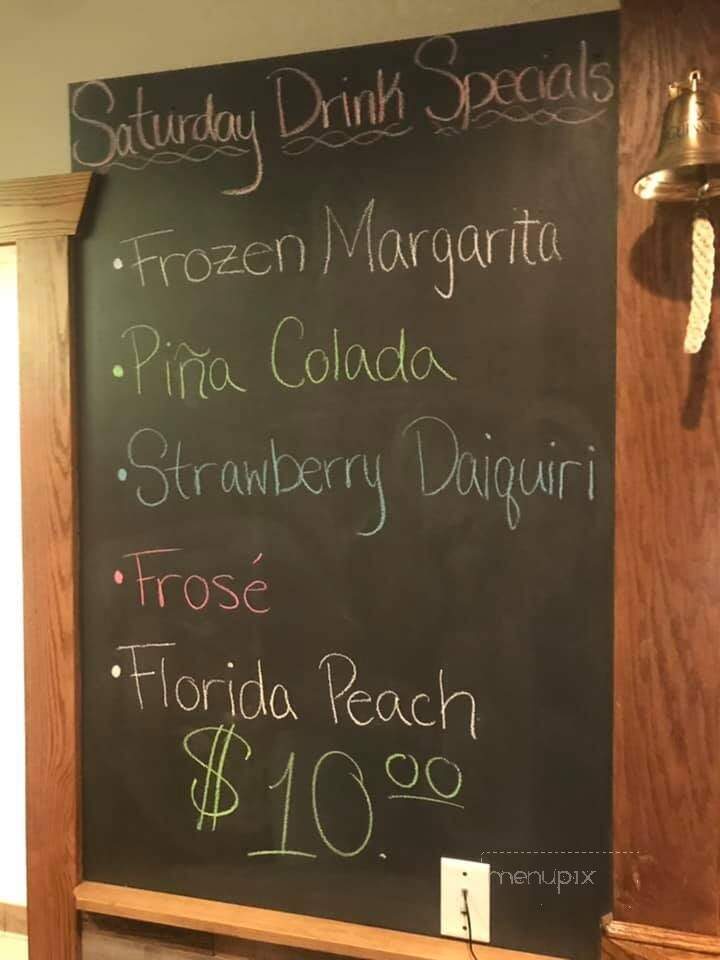 Saturday Drink Specials
• Frozen Margarita
• Piña Colada
• Strawberry Daiquiri
• Frosé
• Florida Peach
$10.00
menupix